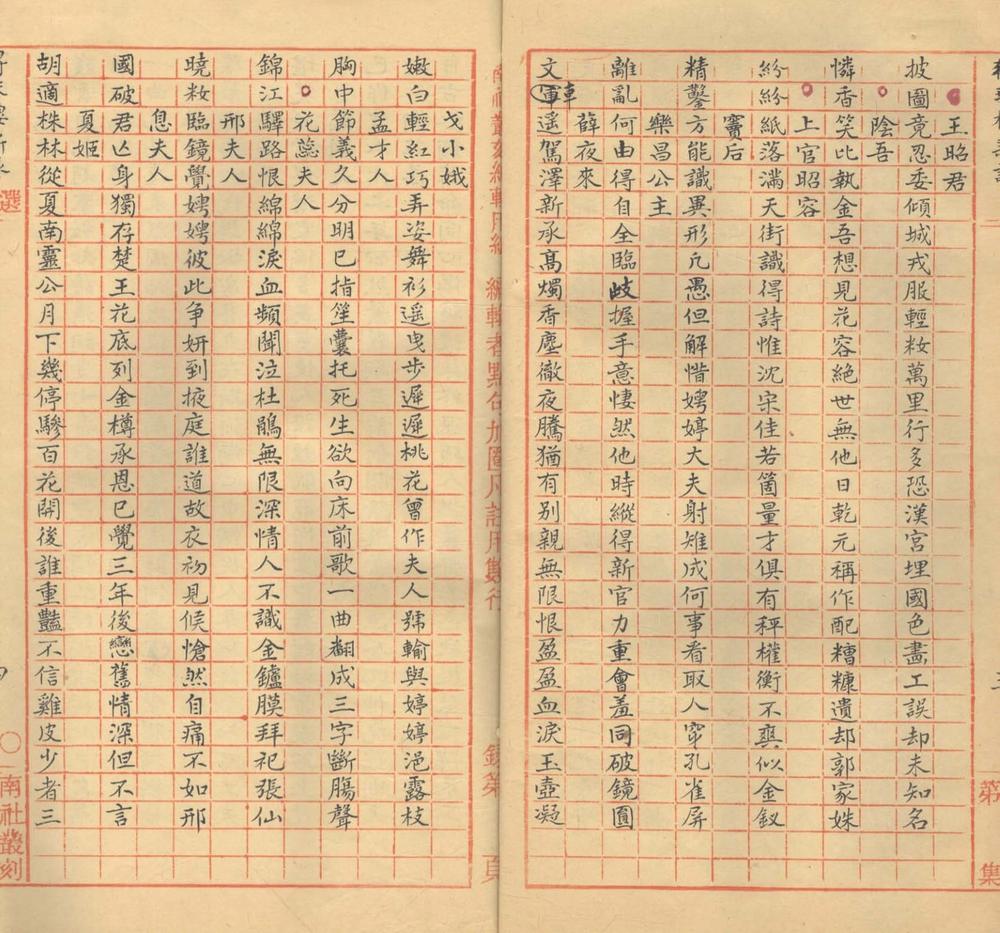 王昭君
披圖竟忍委傾城戎服輕粧萬里行多恐漢宮埋國色畫工誤却未知名
陰吾
憐香笑比執金吾想見花容絕世無他日乾元稱作配糟糠遺却郭家姝
上官昭容
紛紛紙落滿天街識得詩惟沈宋佳若箇量才俱有秤權衡不爽似金釵
竇后
精鑒方能識異形凡愚但解惜娉婷大夫射雉成何事看取人穿孔雀屏
樂昌公主
離亂何由得自全臨歧握手意悽然他時縱得新官力重會羞同破鏡圓
薛夜來
文車遥駕澤新承高燭香塵徹夜騰猶有別親無限恨盈盈血淚玉壺凝
南社叢刻編輯用紙 編輯者點句加圈凡註用數行 錄第 頁
第 集
戈小娥
嫩白輕紅巧弄姿舞衫遥曳步遲遲桃花曾作夫人號輸與婷婷浥露枝
孟才人
胸中節義久分明已指笙囊托死生欲向床前歌一曲翻成三字斷腸聲
花蕊夫人
錦江驛路恨綿綿淚血頻聞泣杜鵑無限深情人不識金鑪膜拜祀張仙
邢夫人
曉粧臨鏡覺娉娉彼此争妍到掖庭誰道故衣初見候愴然自痛不如邢
息夫人
國破君亾身獨存楚王花底列金樽承恩已覺三年後戀舊情深但不言
夏姬
胡適株林從夏南靈公月下幾停驂百花開後誰重豔不信雞皮少者三
選
南社叢刻